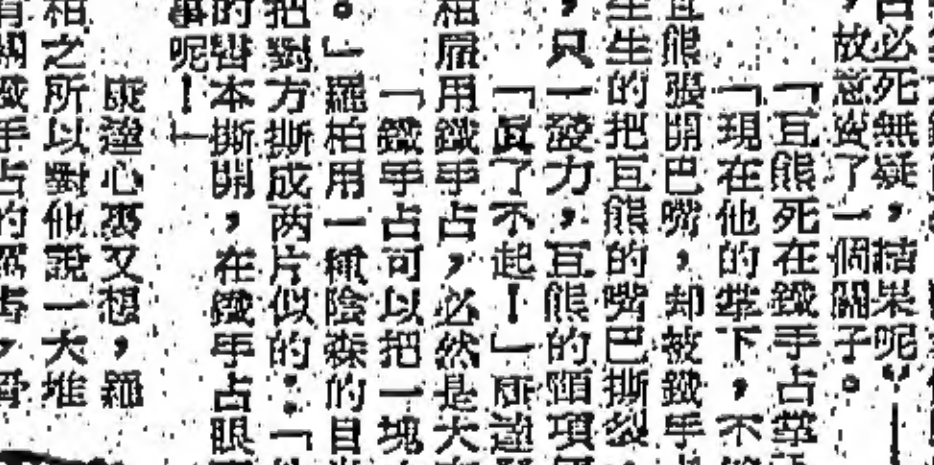 占必死無疑，結果呢？—
，故意賣了一個關子。
「巨熊死在鐵手占掌
「現在他的掌下，不
且熊張開巴嘴，却被鐵手
生生的把巨熊的嘴巴撕裂
，只一發力，巨熊的頸項
「真了不起！」康達
柏原用鐵手占，必然是大
「鐵手占可以把一塊
。」羅柏用一種陰森的目
把對方撕成两片似的：「
的書本撕開，在鐵手占眼
事呢！」
康達心裏又想，羅
柏之所以對他說一大堆
有關鐵手占的厲害，